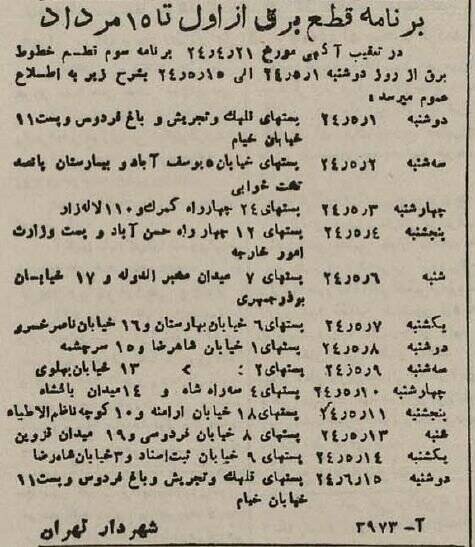 برنامه قطع برق از اول تا ۱۵ مرداد
در تعقیب آگهی مورخ ۲۴٫۴٫۲۱ برنامه سوم قطع خطوط
برق از روز دوشنبه ۲۴٫۵٫۱ الی ۲۴٫۵٫۱۵ بشرح زیر به اطلاع
عموم میرسد:
دوشنبه ۲۴٫۵٫۱ پستهای قلهك و تجریش و باغ فردوس و پست ۱۱
خیابان خیام
سه‌شنبه ۲۴٫۵٫۲ پستهای خیابان ۵ یوسف آباد و بیمارستان پانصد
تخت خوابی
چهارشنبه ۲۴٫۵٫۳ پستهای ۲۴ چهارراه گمرك و ۱۱۰ لاله‌زار
پنجشنبه ۲۴٫۵٫۴ پستهای ۱۲ چهار راه حسن آباد و پست وزارت
امور خارجه
شنبه ۲۴٫۵٫۶ پستهای ۷ میدان مخبر الدوله و ۱۷ خیابان
بوذرجمهری
یکشنبه ۲۴٫۵٫۷ پستهای ۶ خیابان بهارستان و ۱۶ خیابان ناصرخسرو
دوشنبه ۲۴٫۵٫۸ پستهای ۱ خیابان شاهرضا و ۱۵ سرچشمه
سه‌شنبه ۲۴٫۵٫۹ پستهای ۲ : > ۱۳ خیابان پهلوی
چهارشنبه ۲۴٫۵٫۱۰ پستهای ٤ سه‌راه شاه و ۱۴ میدان باغشاه
پنجشنبه ۲۴٫۵٫۱۱ پستهای ۱۸ خیابان ارامنه و ۱۰ کوچه ناظم‌الاطباء
شنبه ۲۴٫۵٫۱۳ پستهای ۸ خیابان فردوسی و ۱۹ میدان قزوین
یکشنبه ۲۴٫۵٫۱۴ پستهای ۹ خیابان ثبت‌اسناد و ۳ خیابان شاهرضا
دوشنبه ۲۴٫۶٫۱۵ پستهای قلهك و تجریش و باغ فردوس و پست ۱۱
خیابان خیام
آ- ۳۹۷۳ شهردار تهران